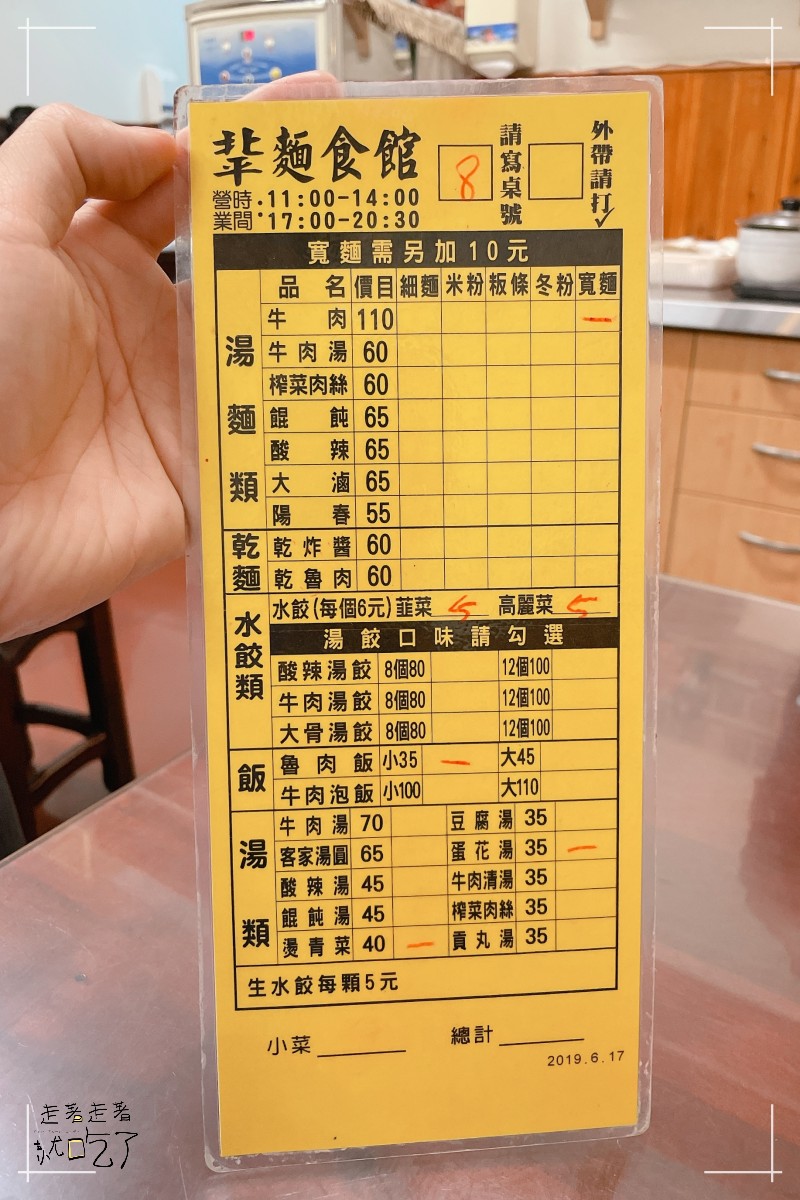 麵食館
8
請寫桌號
外帶請打✓
營業時間:11:00-14:00
17:00-20:30
寬麵需另加10元
湯麵類
品名 價目 細麵 米粉 粄條 冬粉 寬麵
牛肉 110 一
牛肉湯 60
榨菜肉絲 60
餛飩 65
酸辣 65
大滷 65
陽春 55
乾麵
乾炸醬 60
乾魯肉 60
水餃類
水餃(每個6元) 韮菜 5 高麗菜 5
湯餃口味請勾選
酸辣湯餃 8個80 12個100
牛肉湯餃 8個80 12個100
大骨湯餃 8個80 12個100
飯
魯肉飯 小35 一 大45
牛肉泡飯 小100 大110
湯類
牛肉湯 70 豆腐湯 35
客家湯圓 65 蛋花湯 35 一
酸辣湯 45 牛肉清湯 35
餛飩湯 45 榨菜肉絲 35
燙青菜 40 一 貢丸湯 35
生水餃每顆5元
小菜 總計
2019.6.17
走著走著
就吃了